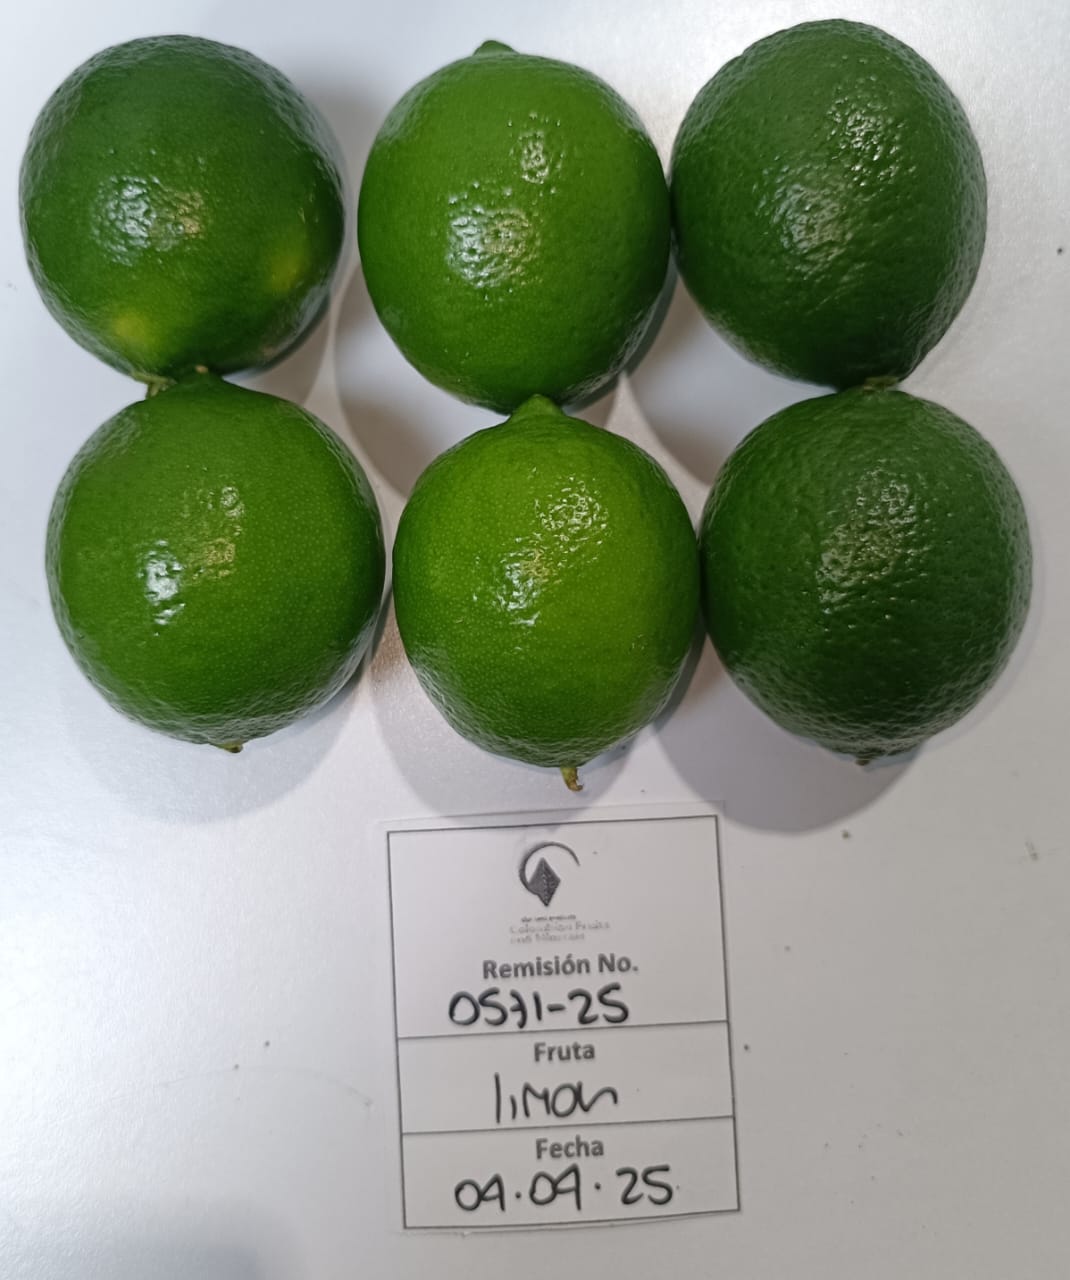 Colombian Fruits
Remisión No.
0571-25
Fruta
limon
Fecha
09.09.25